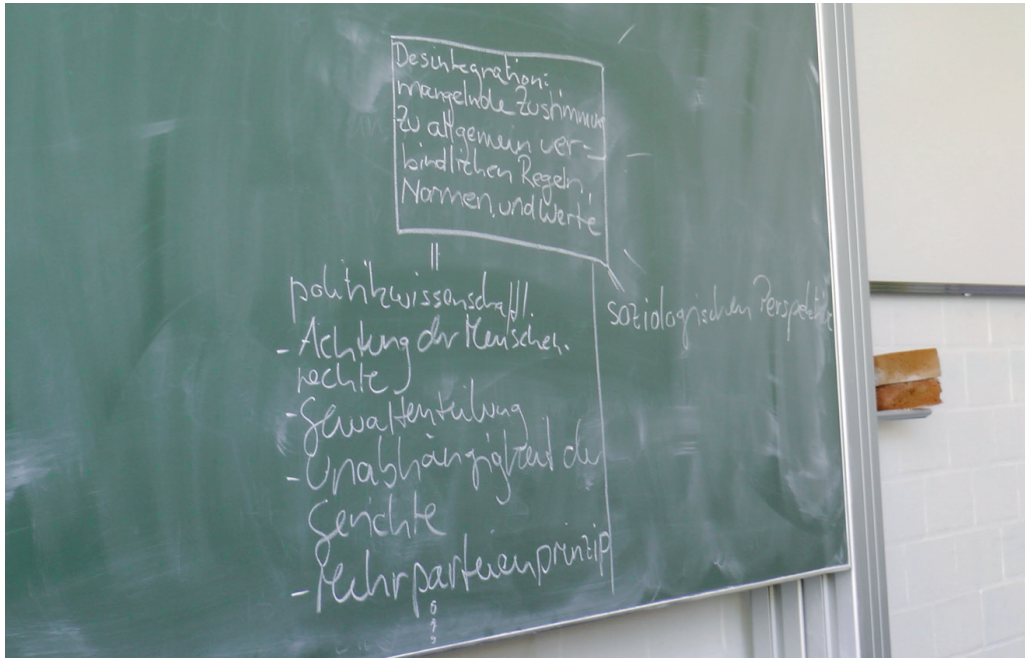 Desintegration:
mangelnde Zustimmung
zu allgemein ver-
bindlichen Regeln,
Normen, und Werte
politikwissenschaftl.
- Achtung der Menschen.
rechte
- Gewaltenteilung
- Unabhängigkeit der
Gerichte
- Mehrparteienprinzip
soziologischen Perspektive